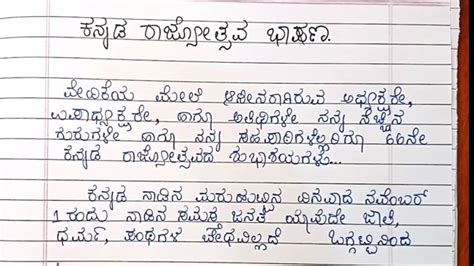 ಕನ್ನಡ ರಾಜ್ಯೋತ್ಸವ ಭಾಷಣ.
ವೇದಿಕೆಯ ಮೇಲೆ ಆಸೀನರಾಗಿರುವ ಅಧ್ಯಕ್ಷರೇ,
ಉಪಾಧ್ಯಕ್ಷರೇ, ಹಾಗೂ ಅತಿಥಿಗಳೇ ನನ್ನ ನೆಚ್ಚಿನ
ಗುರುಗಳೇ ಹಾಗೂ ನನ್ನ ಸಹಪಾಠಿಗಳೆಲ್ಲರಿಗೂ 66ನೇ
ಕನ್ನಡ ರಾಜ್ಯೋತ್ಸವದ ಶುಭಾಶಯಗಳು...
ಕನ್ನಡ ನಾಡಿನ ಮರುಹುಟ್ಟಿನ ದಿನವಾದ ನವೆಂಬರ್
1 ರಂದು ನಾಡಿನ ಸಮಸ್ತ ಜನತೆ ಯಾವುದೇ ಜಾತಿ,
ಧರ್ಮ, ಪಂಥಗಳ ಬೇಧವಿಲ್ಲದೆ ಒಗ್ಗಟ್ಟಿನಿಂದ